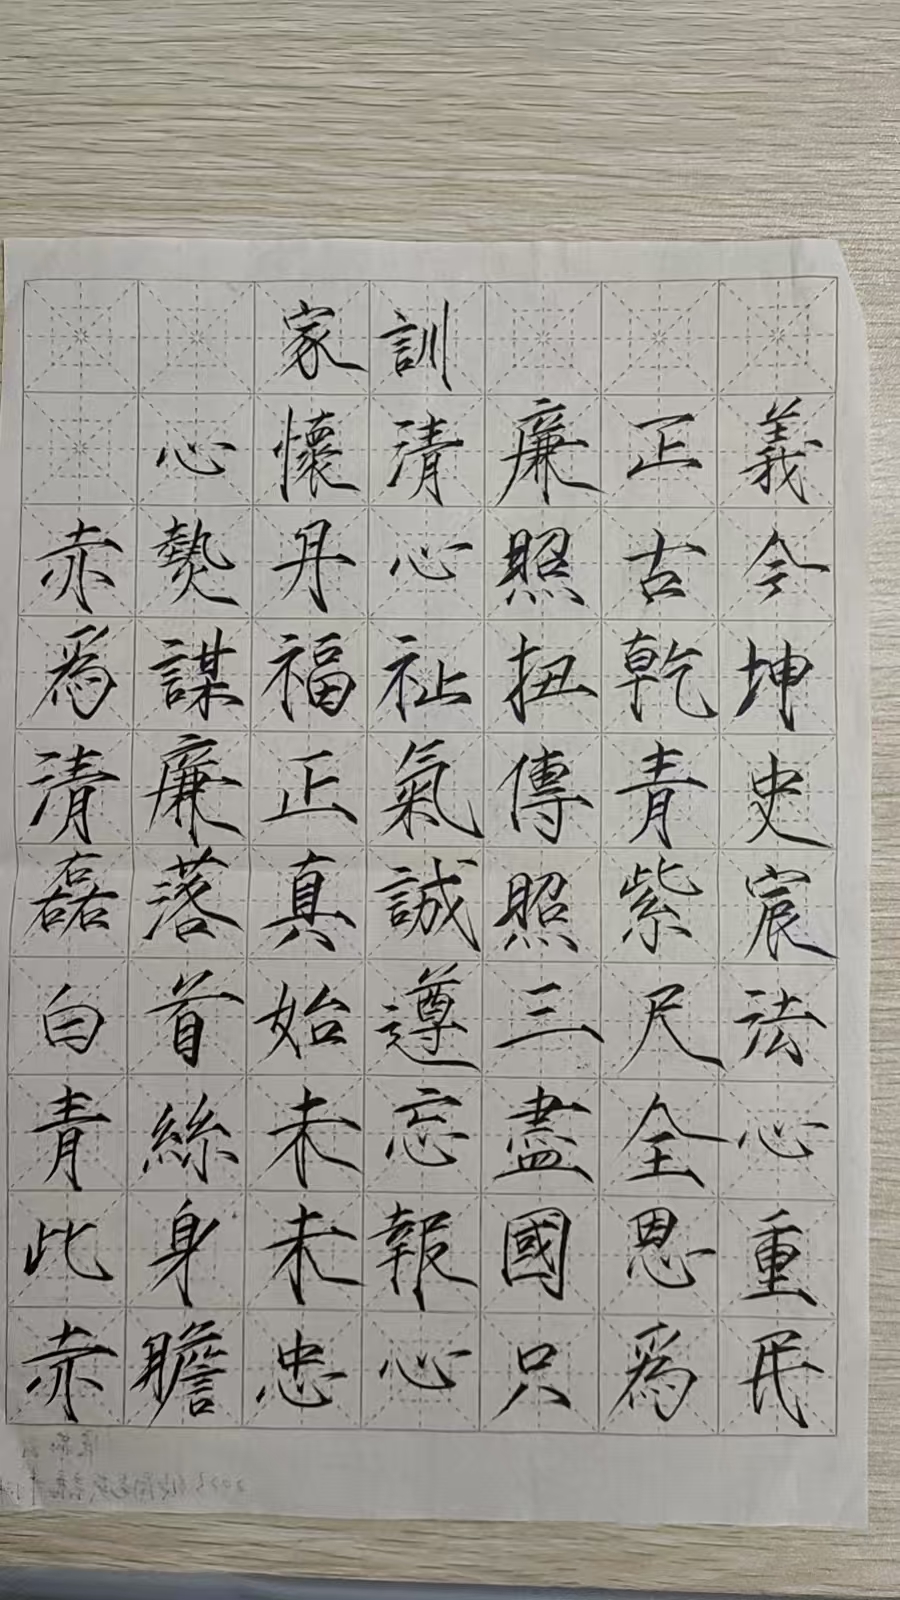 家訓
心懷清廉正義
赤熱丹心照古今
爲謀福祉扭乾坤
清廉正氣傳青史
磊落真誠照紫宸
白首始遵三尺法
青絲未忘盡全心
此身未報國恩重
赤膽忠心只爲民